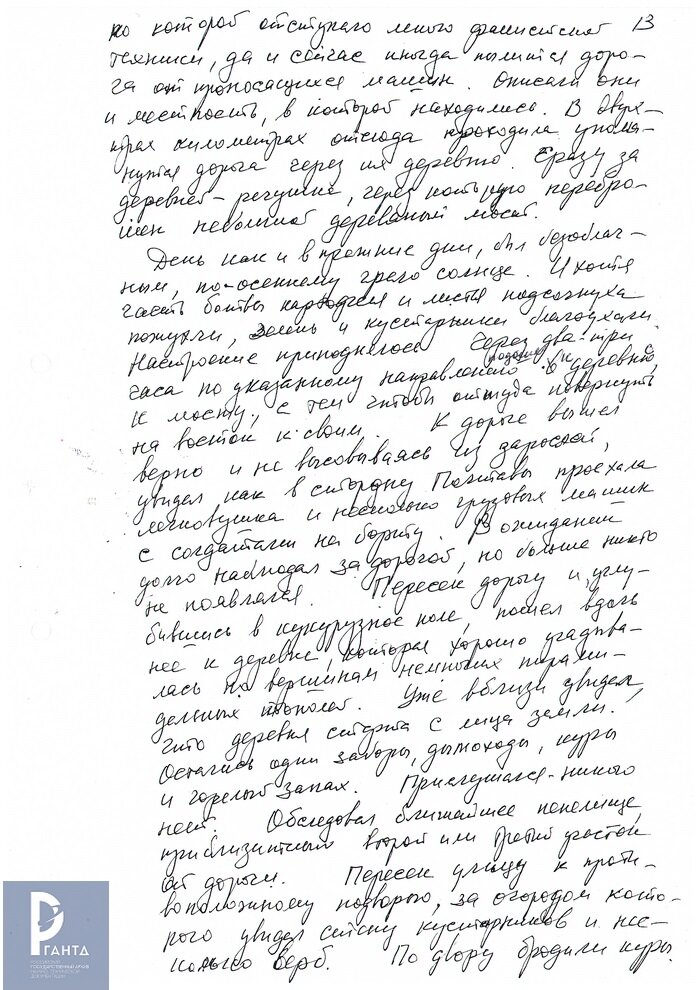 по которой отступало много фашистской 13
техники, да и сейчас иногда пылится доро-
га от проносящихся машин. Описали они
и местность, в которой находились. В двух-
трех километрах отсюда проходила упомя-
нутая дорога через их деревню. Сразу за
деревней - речушка, через которую перебро-
шен небольшой деревянный мост.
День как и в прежние дни, был безоблач-
ным, по-осеннему грело солнце. И хотя
часть ботвы и листья подсолнуха
пожухли, зелень и кустарники благоухали
Настроение приподнялось Через два-три
часа по указанному направлению к деревне,
к мосту, с тем чтобы оттуда повернуть
на восток к своим. К дороге вышел
верно и не высовываясь из зарослей,
увидел как в сторону Полтавы проехала
легковушка и несколько грузовых машин
с солдатами на борту. В ожидании
долго наблюдал за дорогой, но больше никто
не появлялся. Пересек дорогу и углу-
бившись в кукурузное поле, пошел вдоль
неё к деревне, которая хорошо угадыва-
лась по вершинам немногих пирами-
дельных тополей. Уже вблизи увидел,
что деревня стёрта с лица земли.
Остались одни заборы, дымоходы, куры
и горелый запах. Прислушался - никого
нет. Обследовал ближайшее пепелище,
приблизительно второй или третий участок
от дороги. Пересек улицу к проти-
воположному подворью, за огородом кото-
рого увидел стену кустарников и нес-
колько верб. По двору бродили куры.
РГАНТД
РОССИЙСКИЙ
ГОСУДАРСТВЕННЫЙ АРХИВ
НАУЧНО-ТЕХНИЧЕСКОЙ
ДОКУМЕНТАЦИИ